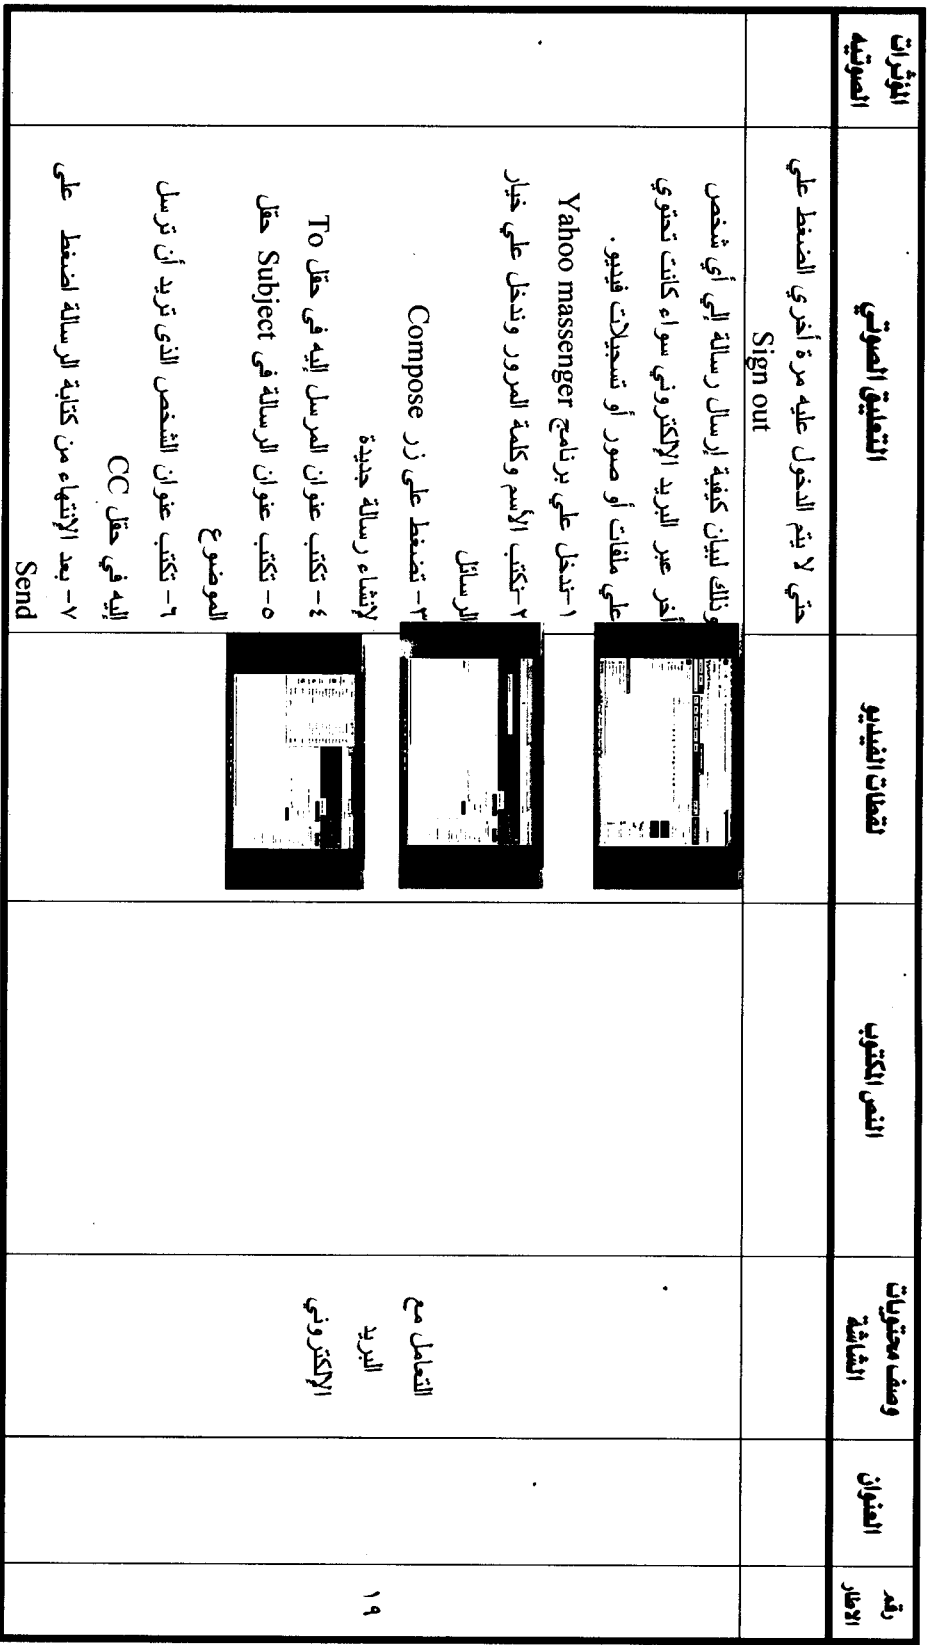 رقم
الاطار
العنوان
وصف محتويات
الشاشة
النص المكتوب
لقطات الفيديو
التعليق الصوتي
المؤثرات
الصوتيه
حتي لا يتم الدخول عليه مرة أخري الضغط علي
Sign out
١٩
التعامل مع
البريد
الإلكتروني
وذلك لبيان كيفية إرسال رسالة إلي أي شخص
أخر عبر البريد الإلكتروني سواء كانت تحتوي
علي ملفات أو صور أو تسجيلات فيديو .
١-تدخل علي برنامج Yahoo massenger
٢-تكتب الأسم وكلمة المرور وندخل علي خيار
الرسائل
٣- تضغط على زر Compose
لإنشاء رسالة جديدة
٤- تكتب عنوان المرسل إليه فى حقل To
٥- تكتب عنوان الرسالة فى Subject حقل
الموضوع
٦- تكتب عنوان الشخص الذى تريد أن ترسل
إليه في حقل CC
٧- بعد الإنتهاء من كتابة الرسالة اضغط على
Send